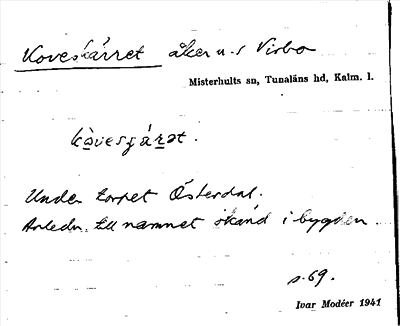 Koveskärret åker u. s Virbo
Misterhults sn, Tunaläns hd, Kalm. l.
kòvesɟárət.
Under torpet Österdal.
Anledn. till namnet okänd i bygden.
s. 69.
Ivar Modéer 1941